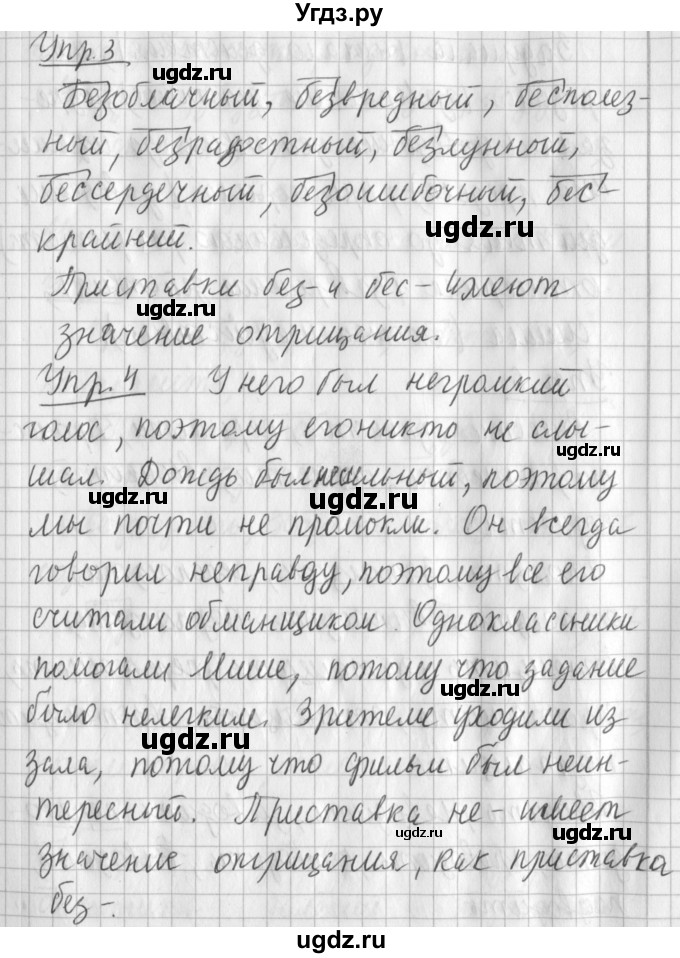 Угдз.ру
Упр.3
ugdz.ru
Безоблачный, безвредный, бесполез-
ugdz.ru
ный, безрадостный, безлунный,
бессердечный, безошибочный, бес-
ugdz.ru
крайний.
Приставки без- и бес- имеют
ugdz.ru
значение отрицания.
Упр.4 У него был негромкий
ugdz.ru
голос, поэтому его никто не слы-
шал. Дождь был несильный, поэтому
ugdz.ru
ugdz.ru
мы почти не промокли. Он всегда
говорил неправду, поэтому все его
считали обманщиком. Одноклассники
ugdz.ru
помогали Мише, потому что задание
ugdz.ru
было нелегким. Зрители уходили из
ugdz.ru
зала, потому что фильм был неин-
тересный. Приставка не- имеет
ugdz.ru
ugdz.ru
значение отрицания, как приставка
без-.
ugdz.ru
ugdz.ru